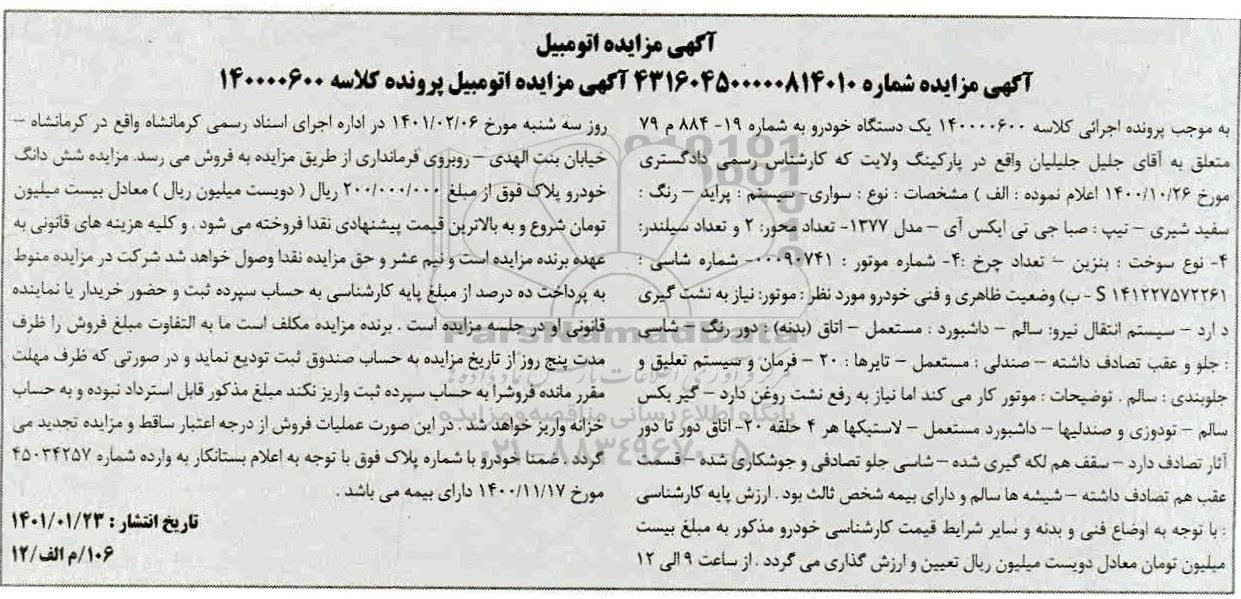 آگهی مزایده اتومبیل
آگهی مزایده شماره ۴۳۱۶۰۴۵۰۰۰۰۰۸۱۴۰۱۰ آگهی مزایده اتومبیل پرونده کلاسه ۱۴۰۰۰۰۶۰۰
به موجب پرونده اجرائی کلاسه ۱۴۰۰۰۰۶۰۰ یک دستگاه خودرو به شماره ۱۹- ۸۸۴ م ۷۹
متعلق به آقای جلیل جلیلیان واقع در پارکینگ ولایت که کارشناس رسمی دادگستری
مورخ ۱۴۰۰/۱۰/۲۶ اعلام نموده : الف ) مشخصات : نوع : سواری- سیستم : پراید – رنگ :
سفید شیری – تیپ : صبا جی تی ایکس آی – مدل ۱۳۷۷- تعداد محور: ۲ و تعداد سیلندر:
۴- نوع سوخت : بنزین – تعداد چرخ :۴- شماره موتور : ۰۰۰۹۰۷۴۱- شماره شاسی :
S ۱۴۱۲۲۷۵۷۲۲۶۱ - ب) وضعیت ظاهری و فنی خودرو مورد نظر : موتور: نیاز به نشت گیری
د ارد – سیستم انتقال نیرو: سالم – داشبورد : مستعمل – اتاق (بدنه) : دور رنگ – شاسی
: جلو و عقب تصادف داشته – صندلی : مستعمل – تایرها : ۲۰ – فرمان و سیستم تعلیق و
جلوبندی : سالم . توضیحات : موتور کار می کند اما نیاز به رفع نشت روغن دارد – گیر بکس
سالم – تودوزی و صندلیها – داشبورد مستعمل – لاستیکها هر ۴ حلقه ۲۰- اتاق دور تا دور
آثار تصادف دارد – سقف هم لکه گیری شده – شاسی جلو تصادفی و جوشکاری شده – قسمت
عقب هم تصادف داشته – شیشه ها سالم و دارای بیمه شخص ثالث بود . ارزش پایه کارشناسی
: با توجه به اوضاع فنی و بدنه و سایر شرایط قیمت کارشناسی خودرو مذکور به مبلغ بیست
میلیون تومان معادل دویست میلیون ریال تعیین و ارزش گذاری می گردد . از ساعت ۹ الی ۱۲
روز سه شنبه مورخ ۱۴۰۱/۰۲/۰۶ در اداره اجرای اسناد رسمی کرمانشاه واقع در کرمانشاه –
خیابان بنت الهدی – روبروی فرمانداری از طریق مزایده به فروش می رسد. مزایده شش دانگ
خودرو پلاک فوق از مبلغ ۲۰۰/۰۰۰/۰۰۰ ریال ( دویست میلیون ریال ) معادل بیست میلیون
تومان شروع و به بالاترین قیمت پیشنهادی نقدا فروخته می شود . و کلیه هزینه های قانونی به
عهده برنده مزایده است و نیم عشر و حق مزایده نقدا وصول خواهد شد شرکت در مزایده منوط
به پرداخت ده درصد از مبلغ پایه کارشناسی به حساب سپرده ثبت و حضور خریدار یا نماینده
قانونی او در جلسه مزایده است . برنده مزایده مکلف است ما به التفاوت مبلغ فروش را ظرف
مدت پنج روز از تاریخ مزایده به حساب صندوق ثبت تودیع نماید و در صورتی که ظرف مهلت
مقرر مانده فروشرا به حساب سپرده ثبت واریز نکند مبلغ مذکور قابل استرداد نبوده و به حساب
خزانه واریز خواهد شد . در این صورت عملیات فروش از درجه اعتبار ساقط و مزایده تجدید می
گردد . ضمنا خودرو با شماره پلاک فوق با توجه به اعلام بستانکار به وارده شماره ۴۵۰۳۴۲۵۷
مورخ ۱۴۰۰/۱۱/۱۷ دارای بیمه می باشد .
تاریخ انتشار : ۱۴۰۱/۰۱/۲۳
۱۰۶/م الف/۱۲
ParsNamadData
پایگاه اطلاع رسانی مناقصه و مزایده
۰۲۱-۸۸۳۴۹۶۷۰-۵